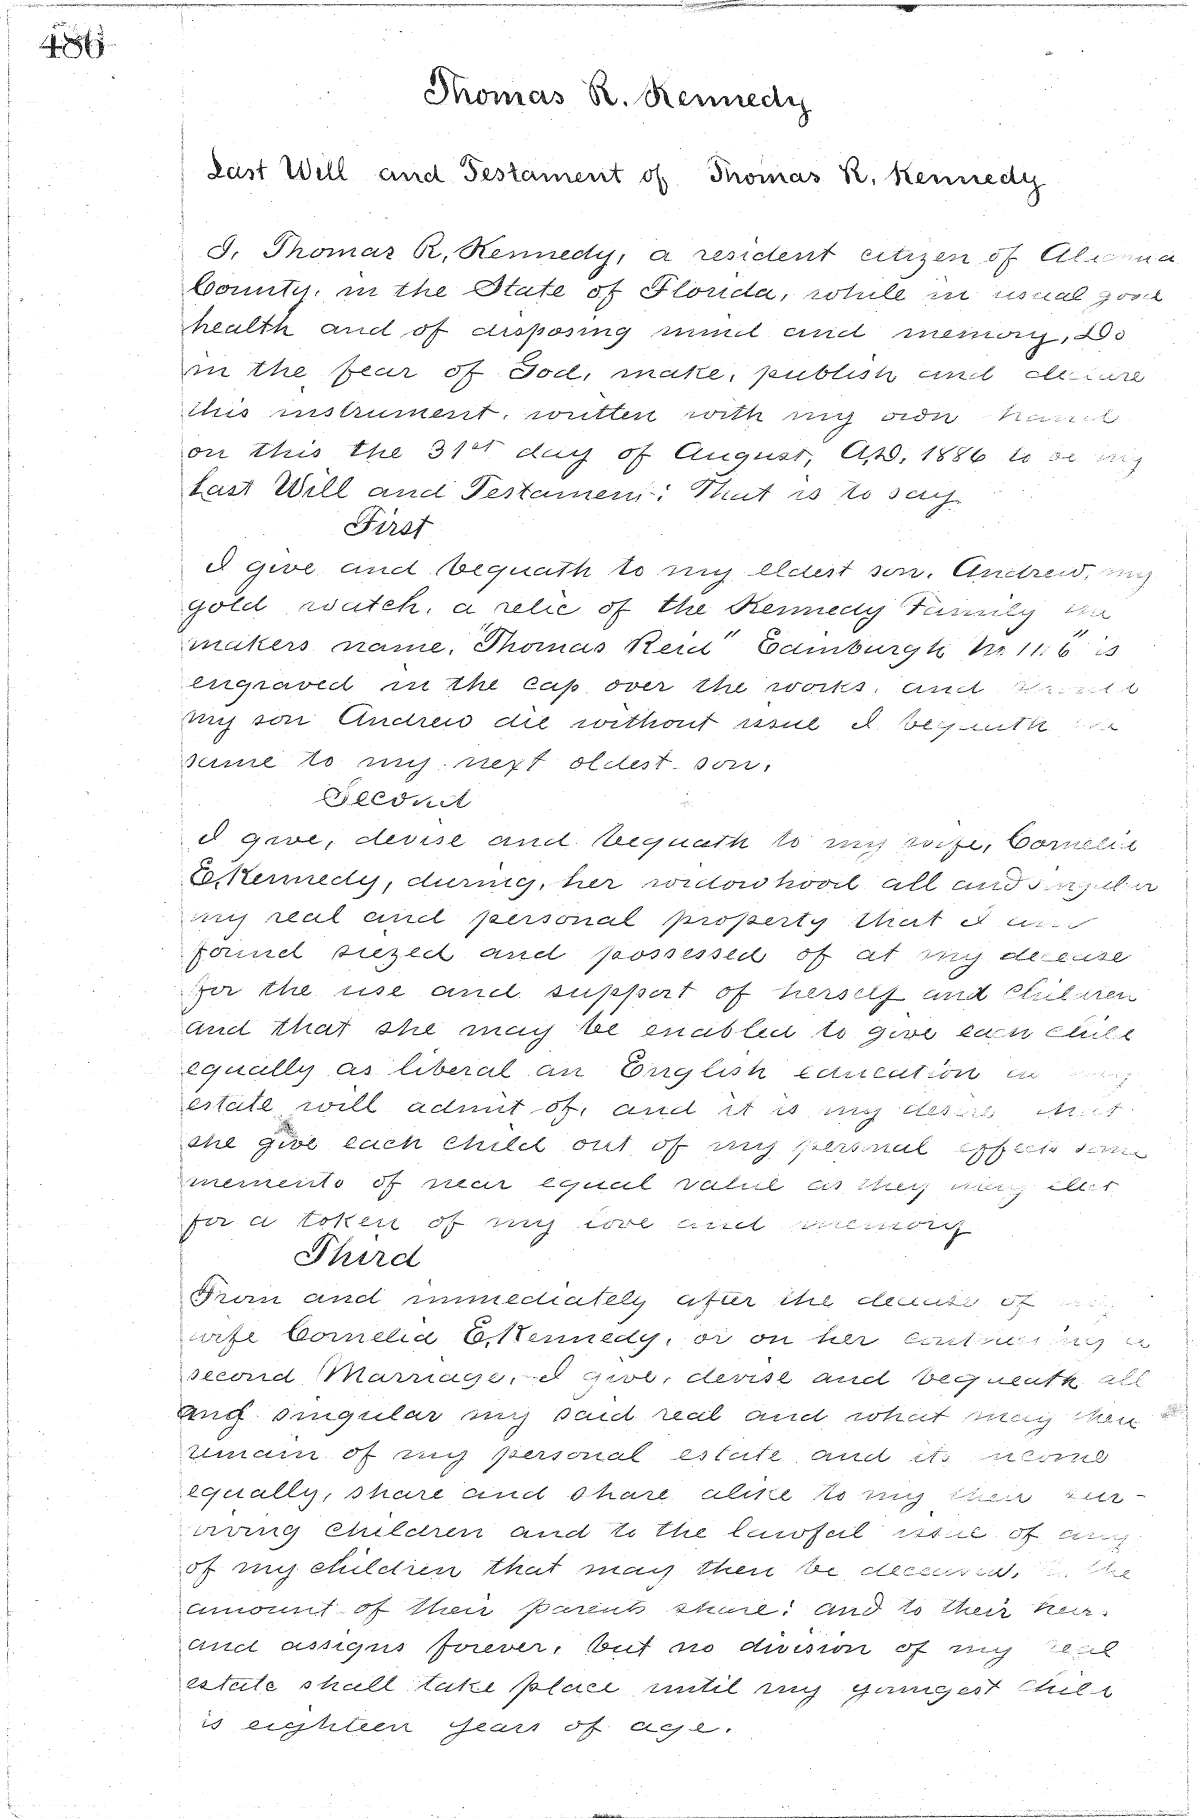 486
Thomas R. Kennedy
Last Will and Testament of Thomas R. Kennedy
I, Thomas R. Kennedy, a resident citizen of
County, in the State of Florida, while in usual good
health and of disposing mind and memory, Do
in the fear of God, make, publish and declare
this instrument, written with my own hand
on this the 31st day of August, A.D. 1886 to be my
Last Will and Testament: That is to say
First
I give and bequath to my eldest son, Andrew, my
gold watch, a relic of the Kennedy Family the
makers name, "Thomas Reid" Edinburgh is
engraved in the cap over the works, and should
my son Andrew die without issue I bequath the
same to my next oldest son.
Second
I give, devise and bequath to my wife, Cornelia
E. Kennedy, during, her widowhood all and singular
my real and personal property that I am
found siezed and possessed of at my decease
for the use and support of herself and children
and that she may be enabled to give each child
equally as liberal an English education as my
estate will admit of, and it is my desire that
she give each child out of my personal effects some
memento of near equal value as they may elect
for a token of my love and memory
Third
From and immediately after the decease of my
wife Cornelia E. Kennedy, or on her contracting a
second Marriage, I give, devise and bequeath all
and singular my said real and what may then
remain of my personal estate and its income
equally, share and share alike to my then sur-
viving children and to the lawful issue of any
of my children that may then be deceased, in the
amount of their parents share: and to their heirs
and assigns forever, but no division of my real
estate shall take place until my youngest child
is eighteen years of age.